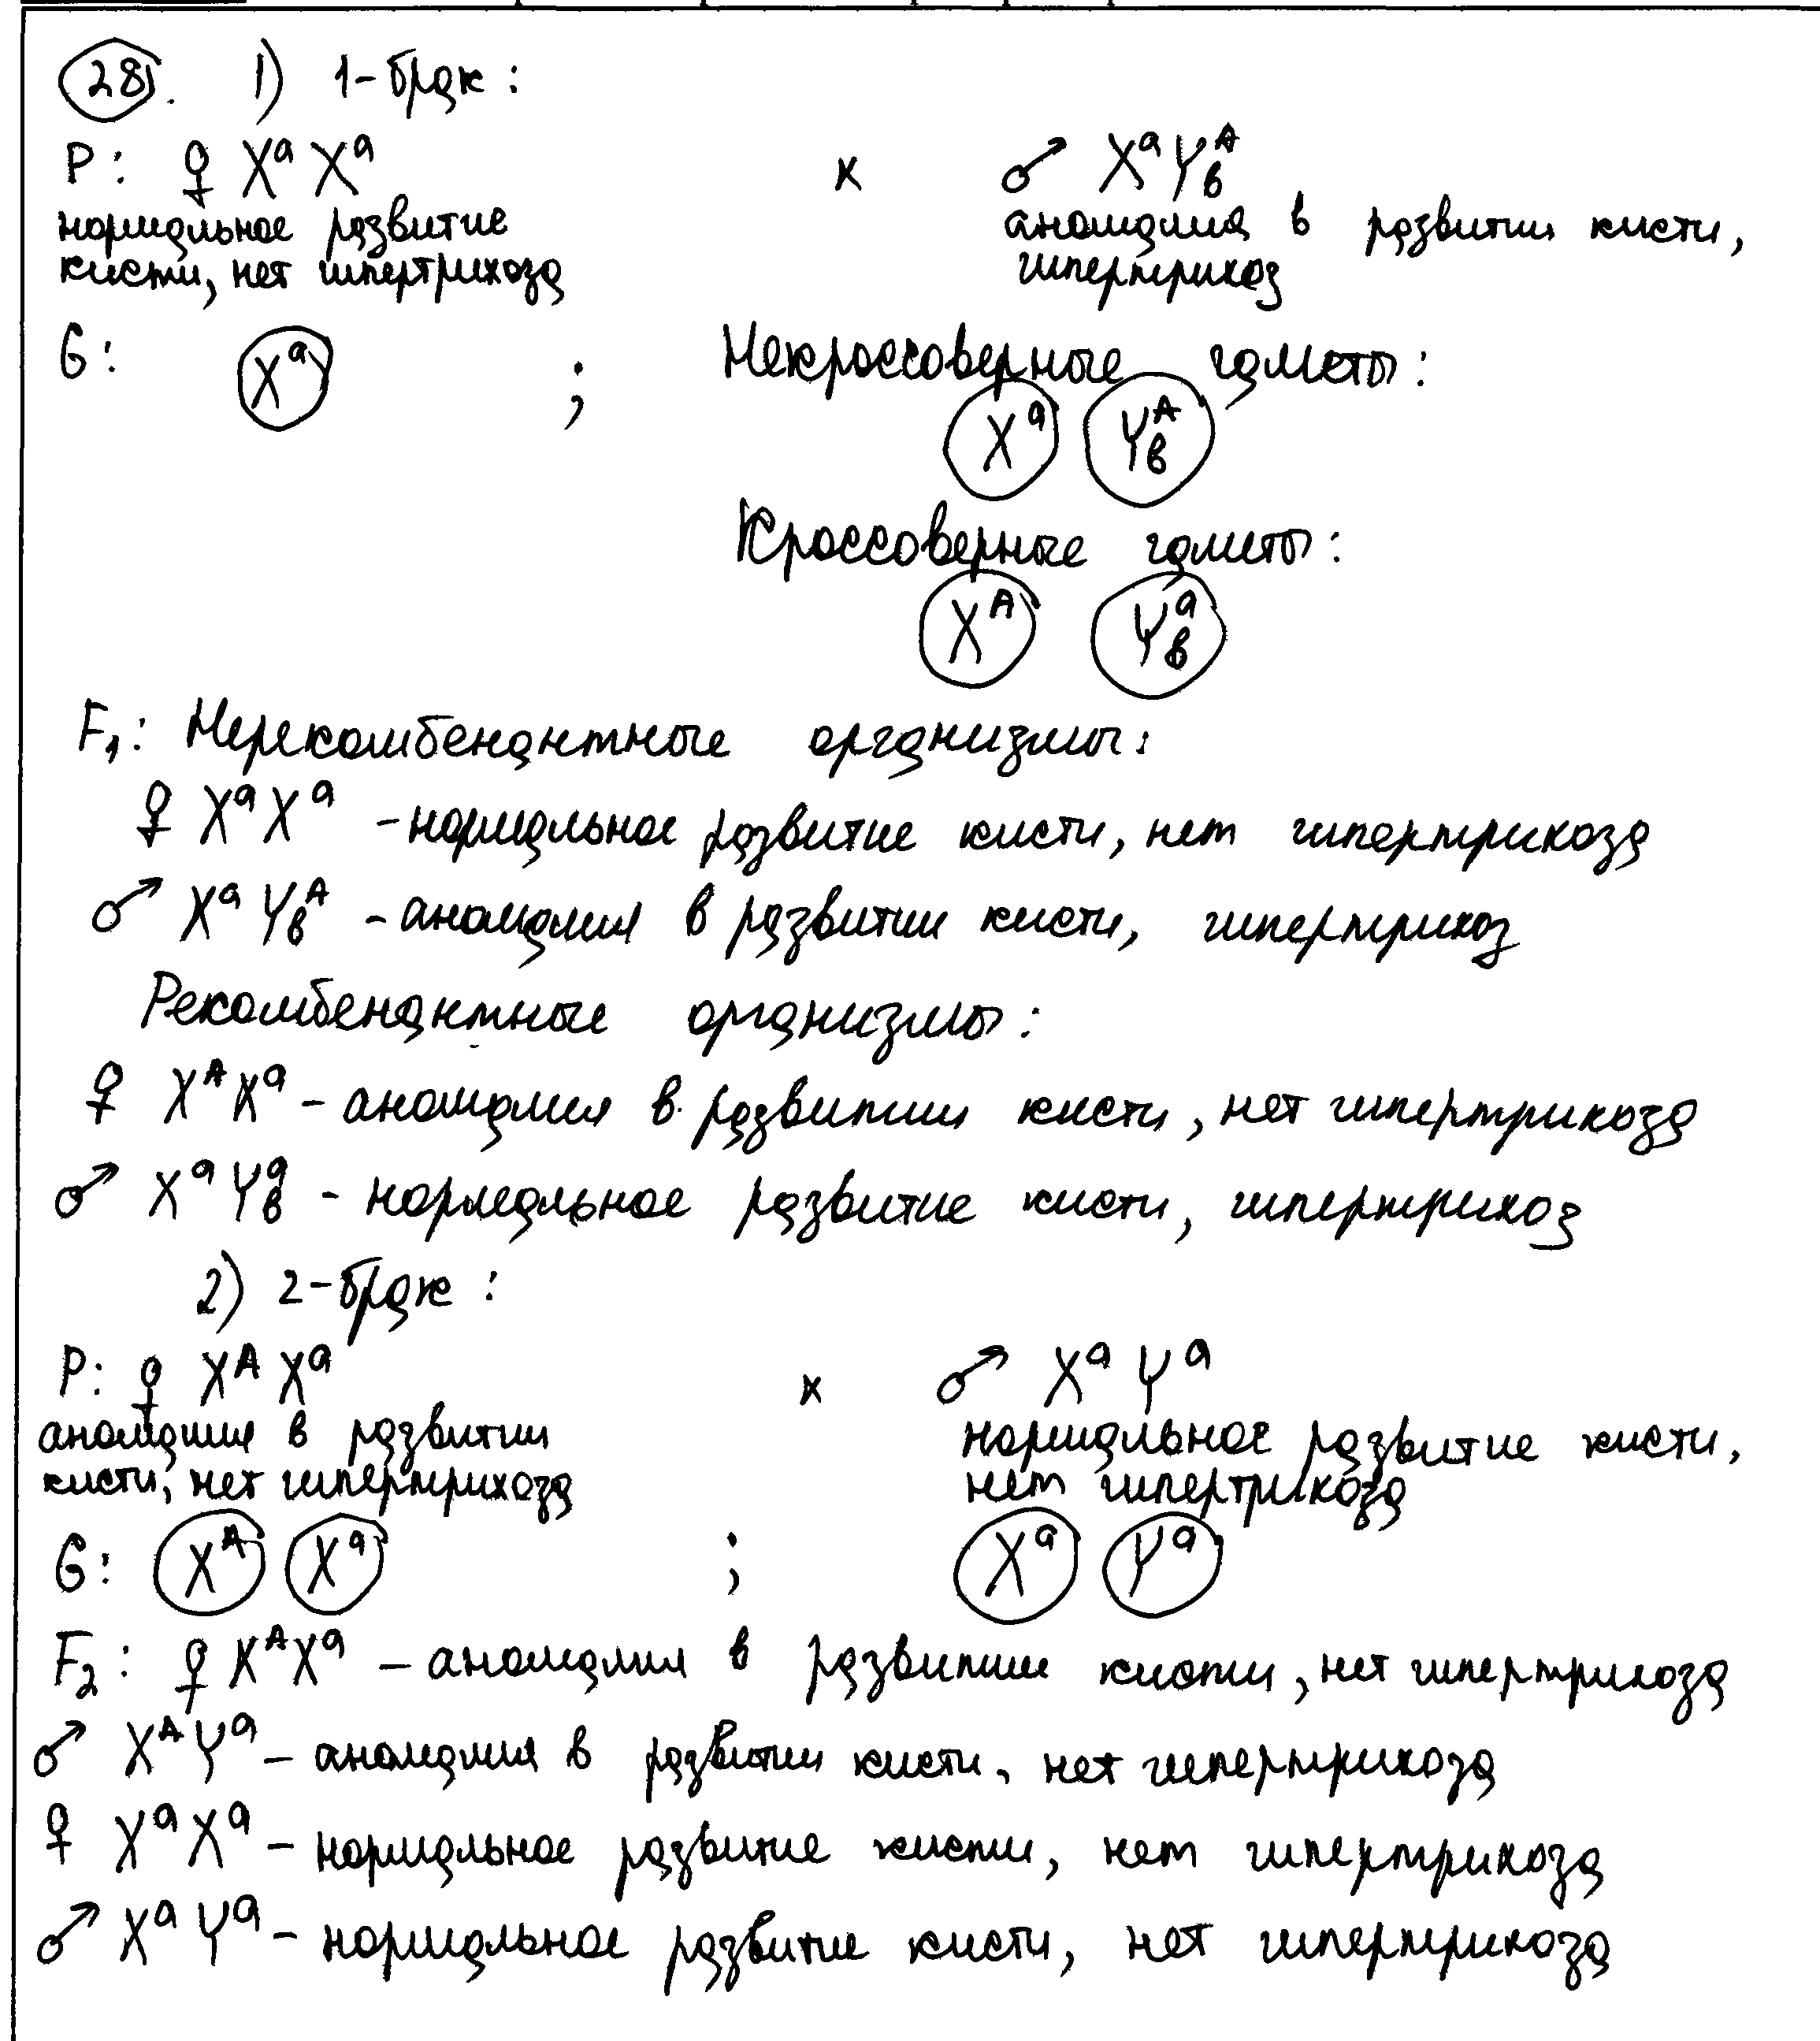 28. 1) 1-брак:
P: ♀ XᵃXᵃ х ♂ XᵃYᴬв
нормальное развитие кисти, нет гипертрихоза
аномалия в развитии кисти, гипертрихоз
G: Xᵃ ; Некроссоверные гаметы:
Xᵃ Yᴬв
Кроссоверные гаметы:
Xᴬ Yᵃв
F₁: Нерекомбенантные организмы:
♀ XᵃXᵃ - нормальное развитие кисти, нет гипертрихоза
♂ XᵃYᴬв - аномалия в развитии кисти, гипертрихоз
Рекомбенантные организмы:
♀ XᴬXᵃ - аномалия в развитии кисти, нет гипертрихоза
♂ XᵃYᵃв - нормальное развитие кисти, гипертрихоз
2) 2-брак:
P: ♀ XᴬXᵃ х ♂ XᵃYᵃ
аномалия в развитии кисти, нет гипертрихоза
нормальное развитие кисти, нет гипертрихоза
G: Xᴬ Xᵃ ; Xᵃ Yᵃ
F₂: ♀ XᴬXᵃ - аномалия в развитии кисти, нет гипертрихоза
♂ XᴬYᵃ - аномалия в развитии кисти, нет гипертрихоза
♀ XᵃXᵃ - нормальное развитие кисти, нет гипертрихоза
♂ XᵃYᵃ - нормальное развитие кисти, нет гипертрихоза